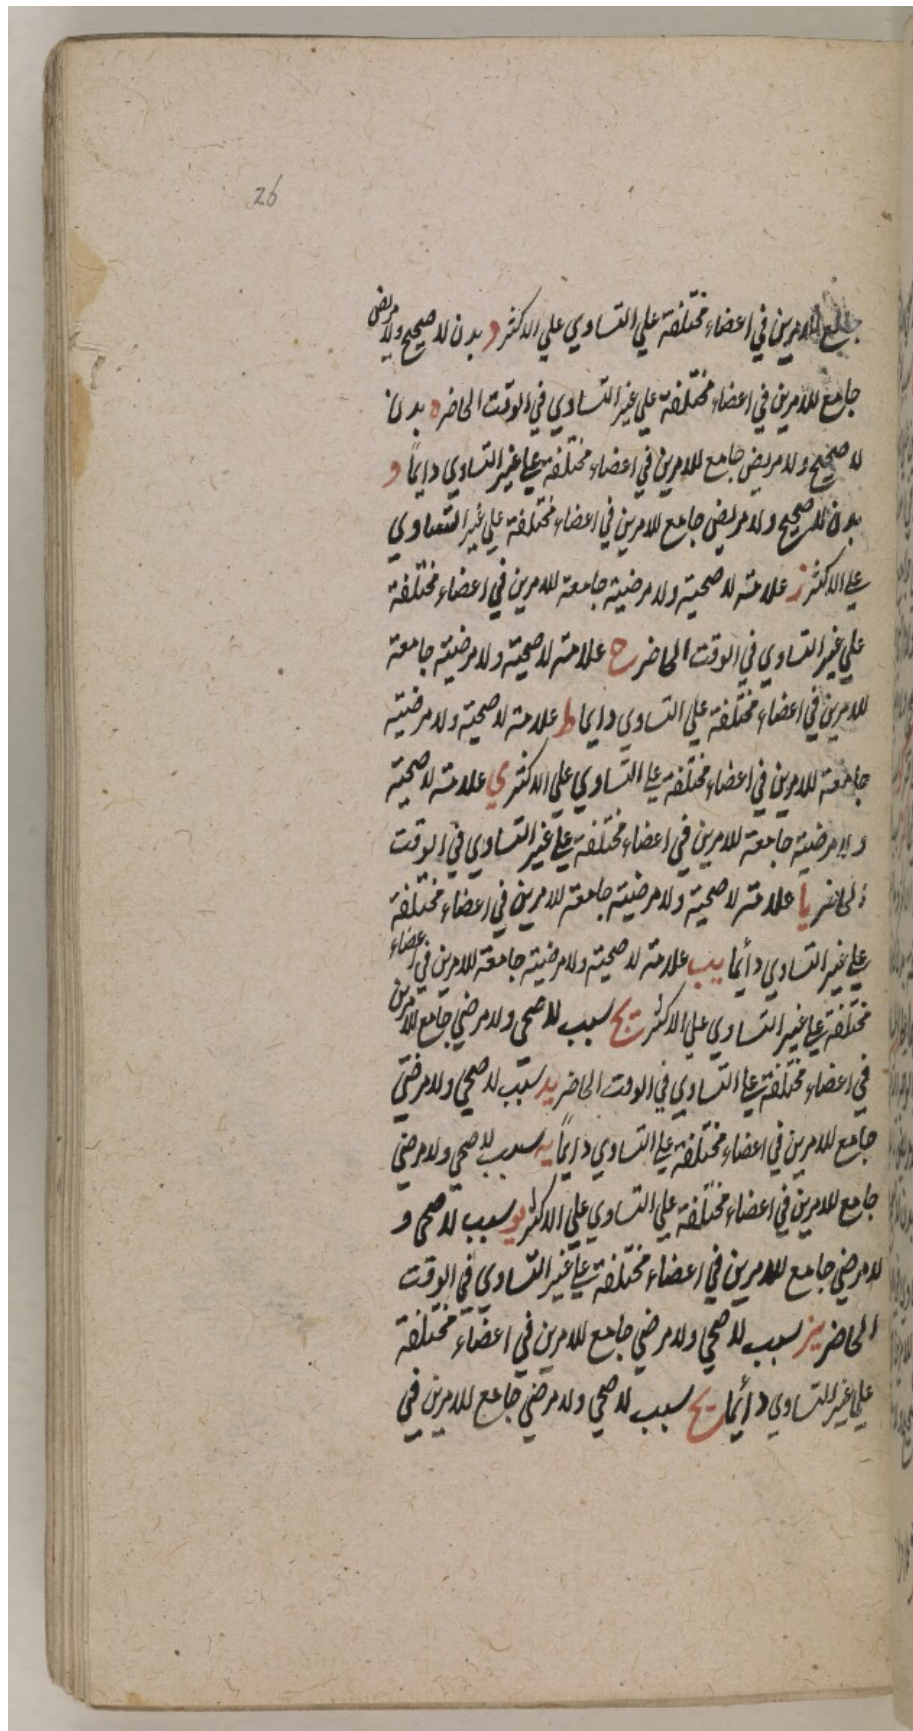 26
جامع للامرين في اعضاء مختلفة علي التساوي علي الاكثر د بدن لا صحيح ولا مريض
جامع للامرين في اعضاء مختلفة علي غير التساوي في الوقت الحاضر ه بدن
لا صحيح ولا مريض جامع للامرين في اعضاء مختلفة علي غير التساوي دايماً و
بدن لا صحيح ولا مريض جامع للامرين في اعضاء مختلفة علي غير التساوي
علي الاكثر ز علامته لا صحيته ولا مرضيته جامعة للامرين في اعضاء مختلفة
علي غير التساوي في الوقت الحاضر ح علامته لا صحيته ولا مرضيته جامعة
للامرين في اعضاء مختلفة علي التساوي دايما ط علامته لا صحيته ولا مرضيته
جامعة للامرين في اعضاء مختلفة علي التساوي علي الاكثر ي علامته لا صحيته
ولا مرضيته جامعة للامرين في اعضاء مختلفة علي غير التساوي في الوقت
الحاضر يا علامته لا صحيته ولا مرضيته جامعة للامرين في اعضاء مختلفة
علي غير التساوي دأيما يب علامته لا صحيته ولا مرضيته جامعة للامرين في اعضاء
مختلفة علي غير التساوي علي الاكثر يج سبب لا صحي ولا مرضي جامع للامرين
في اعضاء مختلفة علي التساوي في الوقت الحاضر يد سبب لا صحي ولا مرضي
جامع للامرين في اعضاء مختلفة علي التساوي دايماً يه سبب لا صحي ولا مرضي
جامع للامرين في اعضاء مختلفة علي التساوي علي الاكثر يو سبب لا صحي و
لا مرضي جامع للامرين في اعضاء مختلفة علي غير التساوي في الوقت
الحاضر يز سبب لا صحي ولا مرضي جامع للامرين في اعضاء مختلفة
علي غير التساوي دأيما يح سبب لا صحي ولا مرضي جامع للامرين في